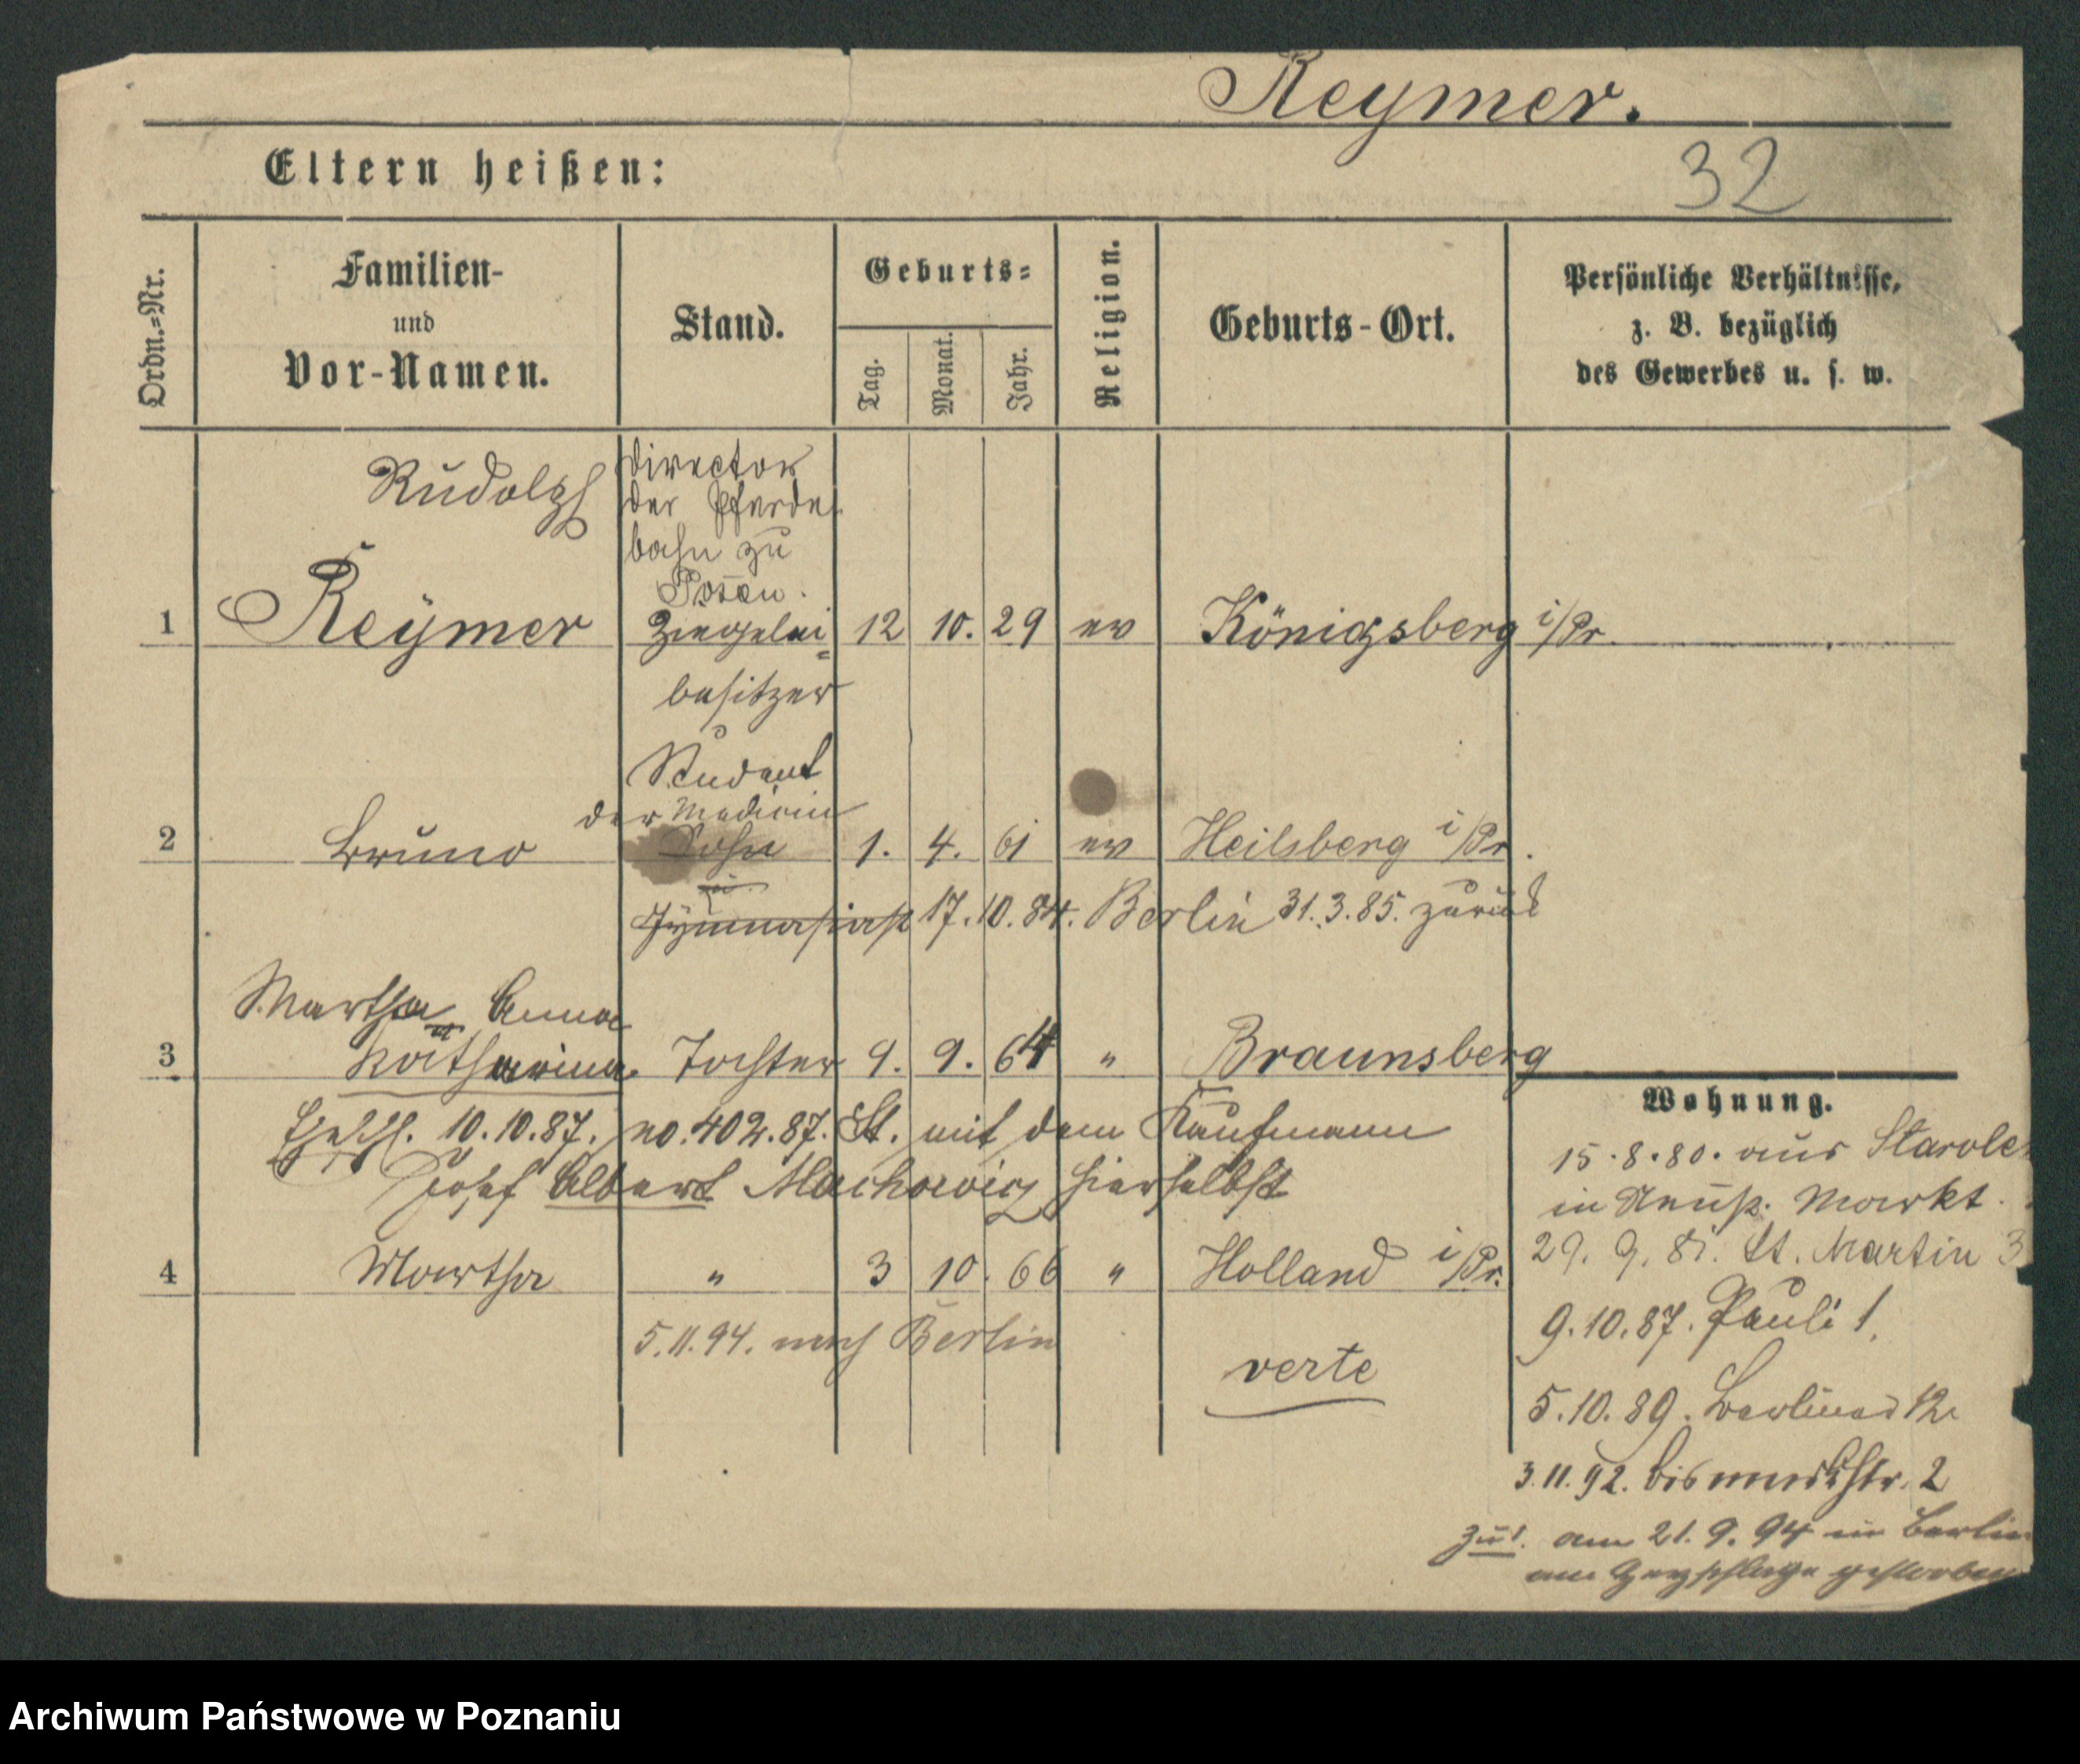 Reymer.
32
Eltern heißen:
Ordn.=Nr.
Familien-
und
Vor-Namen.
Stand.
Geburts=
Tag.
Monat.
Jahr.
Religion.
Geburts-Ort.
Persönliche Verhältnisse,
z. B. bezüglich
des Gewerbes u. s. w.
Rudolph
Director
der Pferde
bahn zu
Posen.
1 Reymer Ziegelei= 12 10. 29 ev Königsberg i/Pr
besitzer
Student
der Medicin
2 Bruno Sohn 1. 4. 61 ev Heilsberg i/Pr.
Gymnasiast 17.10.84. Berlin 31.3.85. zurück
Martha Anna
3 Katharina Tochter 9. 9. 64 " Braunsberg
Ehesch. 10.10.87. no. 402.87. St. mit dem Kaufmann
Josef Albert Machowicz hierselbst
4 Martha " 3 10. 66 " Holland i/Pr.
5.11.94. nach Berlin
verte
Wohnung.
15.8.80. aus Starole
in Markt.
29. 9. 81. St. Martin 3
9.10.87. Pauli 1.
5.10.89. Berliner 12
3.11.92. Bismarckstr. 2
zu 1. am 21.9.94 in Berlin
am gestorben
Archiwum Państwowe w Poznaniu